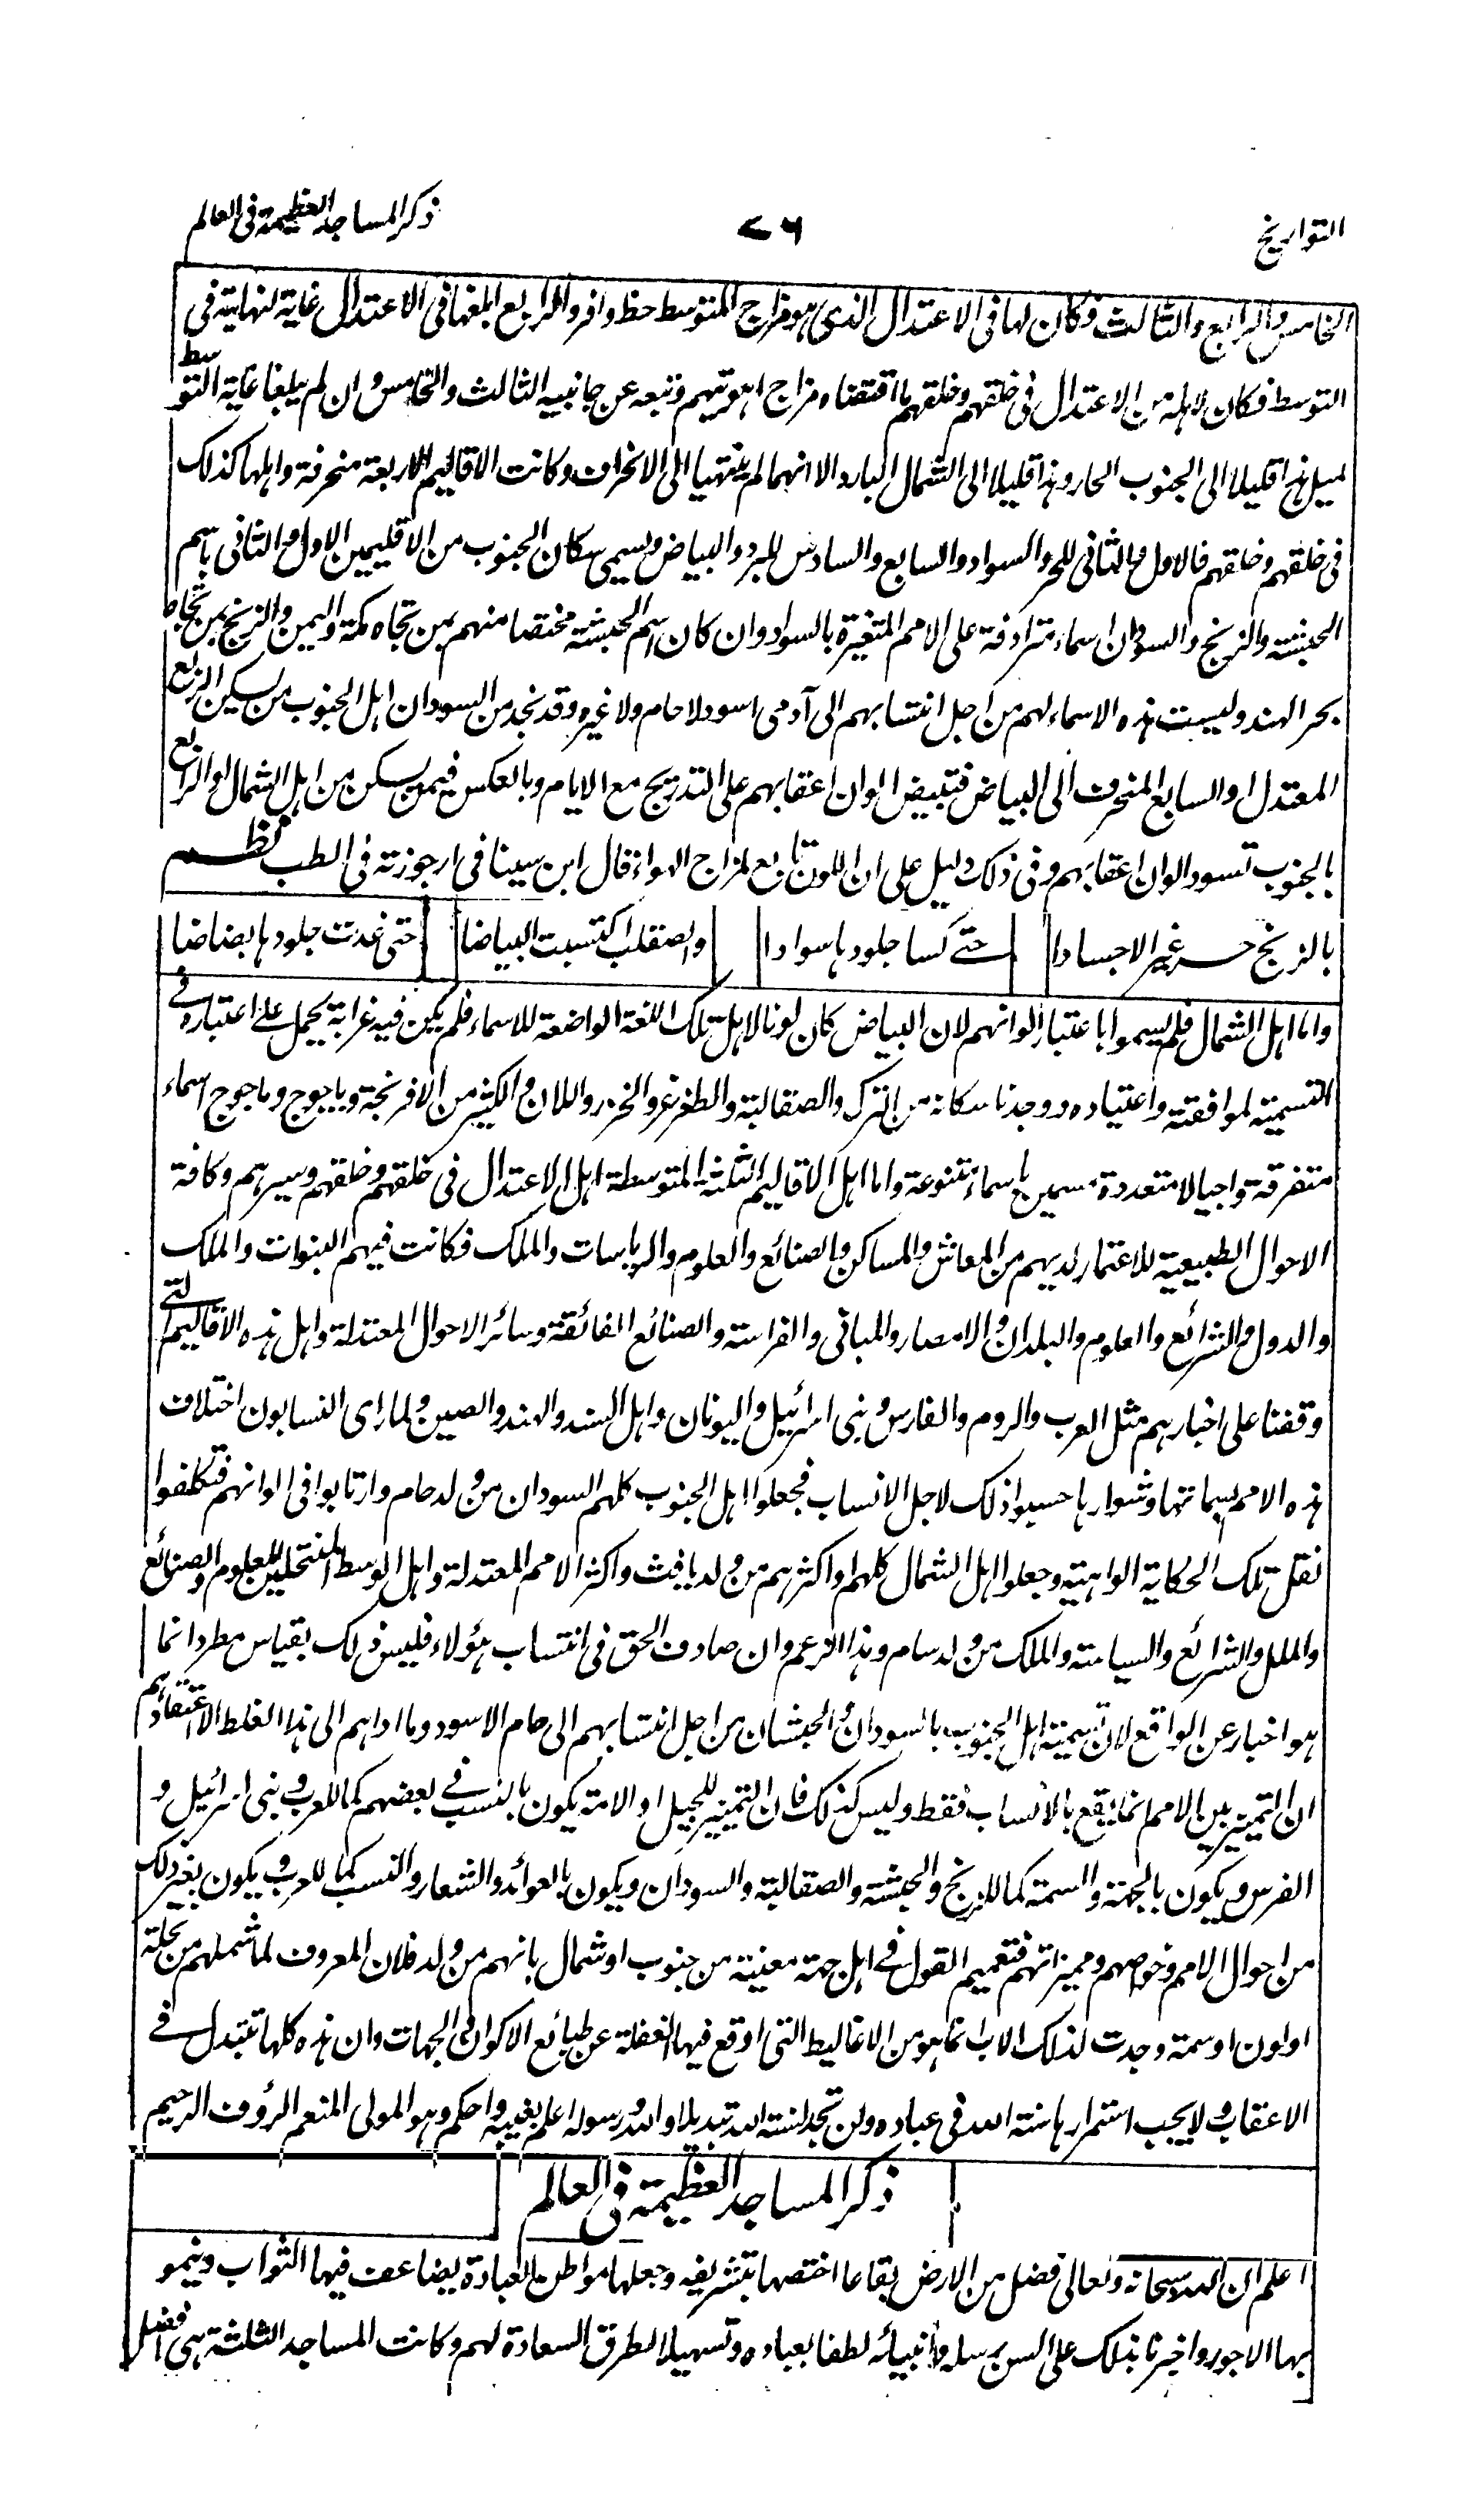 التواريخ
٧٦
ذكر المساجد العظيمة فى العالم
الخامس والرابع والثالث فكان لها فى الاعتدال الذى هو مزاج المتوسط حظ وافر والرابع ابلغها فى الاعتدال غاية لنهايته فى
التوسط فكان لاهله من الاعتدال فى خلقهم وخلقهم ما اقتضاه مزاج اهويتهم وتبعه عن جانبيه الثالث والخامس وان لم يبلغا غاية التوسط
لميل هذا قليلا الى الجنوب الحار وهذا قليلا الى الشمال البارد الا انهما لم ينتهيا الى الانحراف وكانت الاقاليم الاربعة منحرفة واهلها كذلك
فى خلقهم وخلقهم فالاول والثانى للحر والسواد والسابع والسادس للبرد والبياض ويسمى سكان الجنوب من الاقليمين الاول والثانى باسم
الحبشة والزنج والسودان اسماء مترادفة على الامم المتغيرة بالسواد وان كان اسم الحبشة مختصا منهم بمن تجاه مكة واليمن والزنج بمن تجاه
بحر الهند وليست هذه الاسماء لهم من اجل انتسابهم الى آدمى اسود لا حام ولا غيره وقد نجد من السودان اهل الجنوب من يسكن الربع
المعتدل او السابع المنحرف الى البياض فتبيض الوان اعقابهم على التدريج مع الايام وبالعكس فيمن يسكن من اهل الشمال او الرابع
بالجنوب تسود الوان اعقابهم وفى ذلك دليل على ان اللون تابع لمزاج الهواء قال ابن سينا فى ارجوزته فى الطب نظم
بالزنج حر غير الاجسادا حتے كسا جلودها سوادا والصقلب اكتسبت البياضا حتى غدت جلودها بضاضا
واما اهل الشمال فلم يسموا باعتبار الوانهم لان البياض كان لونا لاهل تلك اللغة الواضعة للاسماء فلم يكن فيه غرابة تحمل علے اعتباره فے
التسمية لموافقته واعتياده ووجدنا سكانه من الترك والصقالبة والطغرغر والخزر واللان والكثير من الافرنجة وياجوج وماجوج اسماء
متفرقة واجيالا متعددة مسمين باسماء متنوعة واما اهل الاقاليم الثلثة المتوسطة اهل الاعتدال فى خلقهم وخلقهم وسيرهم وكافة
الاحوال الطبيعية للاعتمار لديهم من المعاش والمساكن والصنائع والعلوم والرياسات والملك فكانت فيهم النبوات والملك
والدول والشرائع والعلوم والبلدان والامصار والمبانى والفراسة والصنائع الفائقة وسائر الاحوال المعتدلة واهل هذه الاقاليم التے
وقفنا على اخبارهم مثل العرب والروم والفارس وبنى اسرائيل واليونان واهل السند والهند والصين ولما راى النسابون اختلاف
هذه الامم بسماتها وشعارها حسبوا ذلك لاجل الانساب فجعلوا اهل الجنوب كلهم السودان من ولد حام وارتابوا فى الوانهم فتكلفوا
نقل تلك الحكاية الواهية وجعلوا اهل الشمال كلهم او اكثرهم من ولد يافث واكثر الامم المعتدلة واهل الوسط المنتحلين للعلوم والصنائع
والملل والشرائع والسياسة والملك من ولد سام وهذا الزعم وان صادف الحق فى انتساب هؤلاء فليس ذلك بقياس مطرد انما
هو اخبار عن الواقع لا ان تسمية اهل الجنوب بالسودان والحبشان من اجل انتسابهم الى حام الاسود وما اداهم الى هذا الغلط الا اعتقادهم
ان التمييز بين الامم انما يقع بالانساب فقط وليس كذلك فان التمييز للجيل او الامة يكون بالنسب فے بعضهم كما للعرب وبنى اسرائيل و
الفرس ويكون بالجهة والسمة كما للزنج والحبشة والصقالبة والسودان ويكون بالعوائد والشعار والنسب كما للعرب ويكون بغير ذلك
من احوال الامم وخواصهم ومميزاتهم فتعميم القول فے اهل جهة معينة من جنوب او شمال بانهم من ولد فلان المعروف لما شملهم من نحلة
او لون او سمة وجدت لذلك الاب انما هو من الاغاليط التى اوقع فيها الغفلة عن طبائع الاكوان والجهات وان هذه كلها تتبدل فے
الاعقاب ولا يجب استمرارها سنة الله فى عباده ولن تجد لسنة الله تبديلا والله ورسوله اعلم بغيبه واحكم وهو المولى المنعم الرؤف الرحيم
ذكر المساجد العظيمة فى العالم
اعلم ان الله سبحانه وتعالى فضل من الارض بقاعا اختصها بتشريفه وجعلها مواطن لعبادة يضاعف فيها الثواب وينمو
بها الاجور واخبرنا بذلك على السن رسله وانبيائه لطفا بعباده وتسهيلا لطرق السعادة لهم وكانت المساجد الثلثة هى افضل